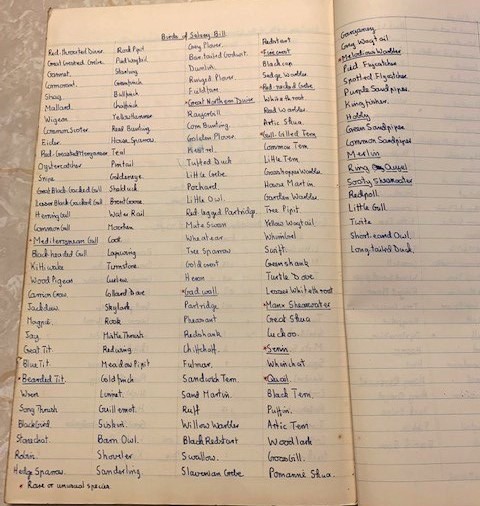 Birds of Selsey Bill
Red-throated Diver
Great Crested Grebe
Gannet
Cormorant
Shag
Mallard
Wigeon
Common Scoter
Eider
Red-breasted Merganser
Oystercatcher
Snipe
Great Black-backed Gull
Lesser Black-backed Gull
Herring Gull
Common Gull
* Mediterranean Gull
Black-headed Gull
Kittiwake
Wood Pigeon
Carrion Crow
Jackdaw
Magpie
Jay
Great Tit
Blue Tit
* Bearded Tit
Wren
Song Thrush
Blackbird
Stonechat
Robin
Hedge Sparrow
Rock Pipit
Pied Wagtail
Starling
Greenfinch
Bullfinch
Chaffinch
Yellowhammer
Reed Bunting
House Sparrow
Teal
Pintail
Goldeneye
Shelduck
Brent Goose
Water Rail
Moorhen
Coot
Lapwing
Turnstone
Curlew
Collard Dove
Skylark
Rook
Mistle Thrush
Redwing
Meadow Pipit
Goldfinch
Linnet
Guillemot
Siskin
Barn Owl
Shoveler
Sanderling
Grey Plover
Bar-tailed Godwit
Dunlin
Ringed Plover
Fieldfare
* Great Northern Diver
Razorbill
Corn Bunting
Golden Plover
Kestrel
Tufted Duck
Little Grebe
Pochard
Little Owl
Red-legged Partridge
Mute Swan
Wheatear
Tree Sparrow
Goldcrest
Heron
* Gadwall
Partridge
Pheasant
Redshank
Chiffchaff
Fulmar
Sandwich Tern
Sand Martin
Ruff
Willow Warbler
Black Redstart
Swallow
Slavonian Grebe
Redstart
* Firecrest
Blackcap
Sedge Warbler
* Red-necked Grebe
Whitethroat
Reed Warbler
Arctic Skua
* Gull-billed Tern
Common Tern
Little Tern
Grasshopper Warbler
House Martin
Garden Warbler
Tree Pipit
Yellow Wagtail
Whimbrel
Swift
Greenshank
Turtle Dove
Lesser Whitethroat
* Manx Shearwater
Great Skua
Cuckoo
* Serin
Whinchat
* Quail
Black Tern
Puffin
Artic Tern
Woodlark
Crossbill
Pomarine Skua
* Rare or unusual species
Garganey
Grey Wagtail
* Melodious Warbler
Pied Flycatcher
Spotted Flycatcher
Purple Sandpiper
Kingfisher
Hobby
Green Sandpiper
Common Sandpiper
Merlin
Ring Ouzel
Sooty Shearwater
Redpoll
Little Gull
Twite
Short-eared Owl
Long-tailed Duck